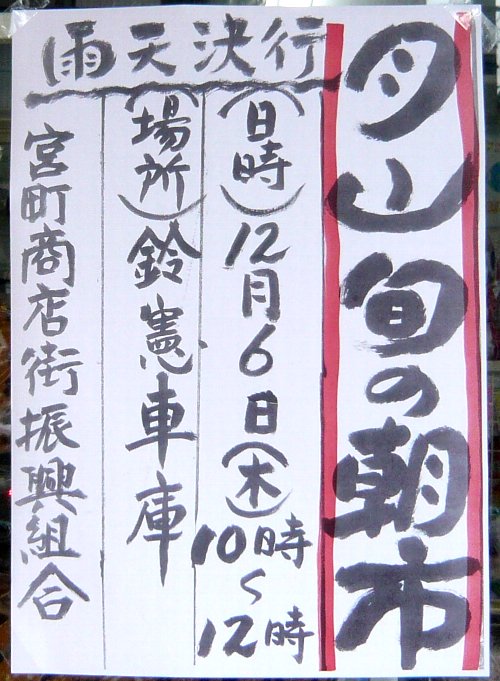 月山旬の朝市
雨天決行
(日時)12月6日(木)10時〜12時
(場所)鈴憲車庫
宮町商店街振興組合